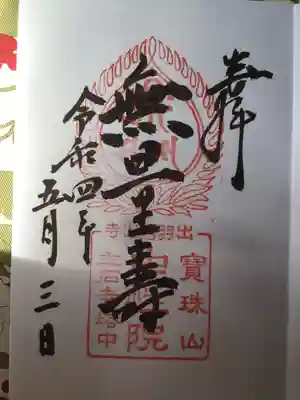 奉
無量寿
令和四年
五月三日
出羽
寺
寶珠山
院
立石寺塔中